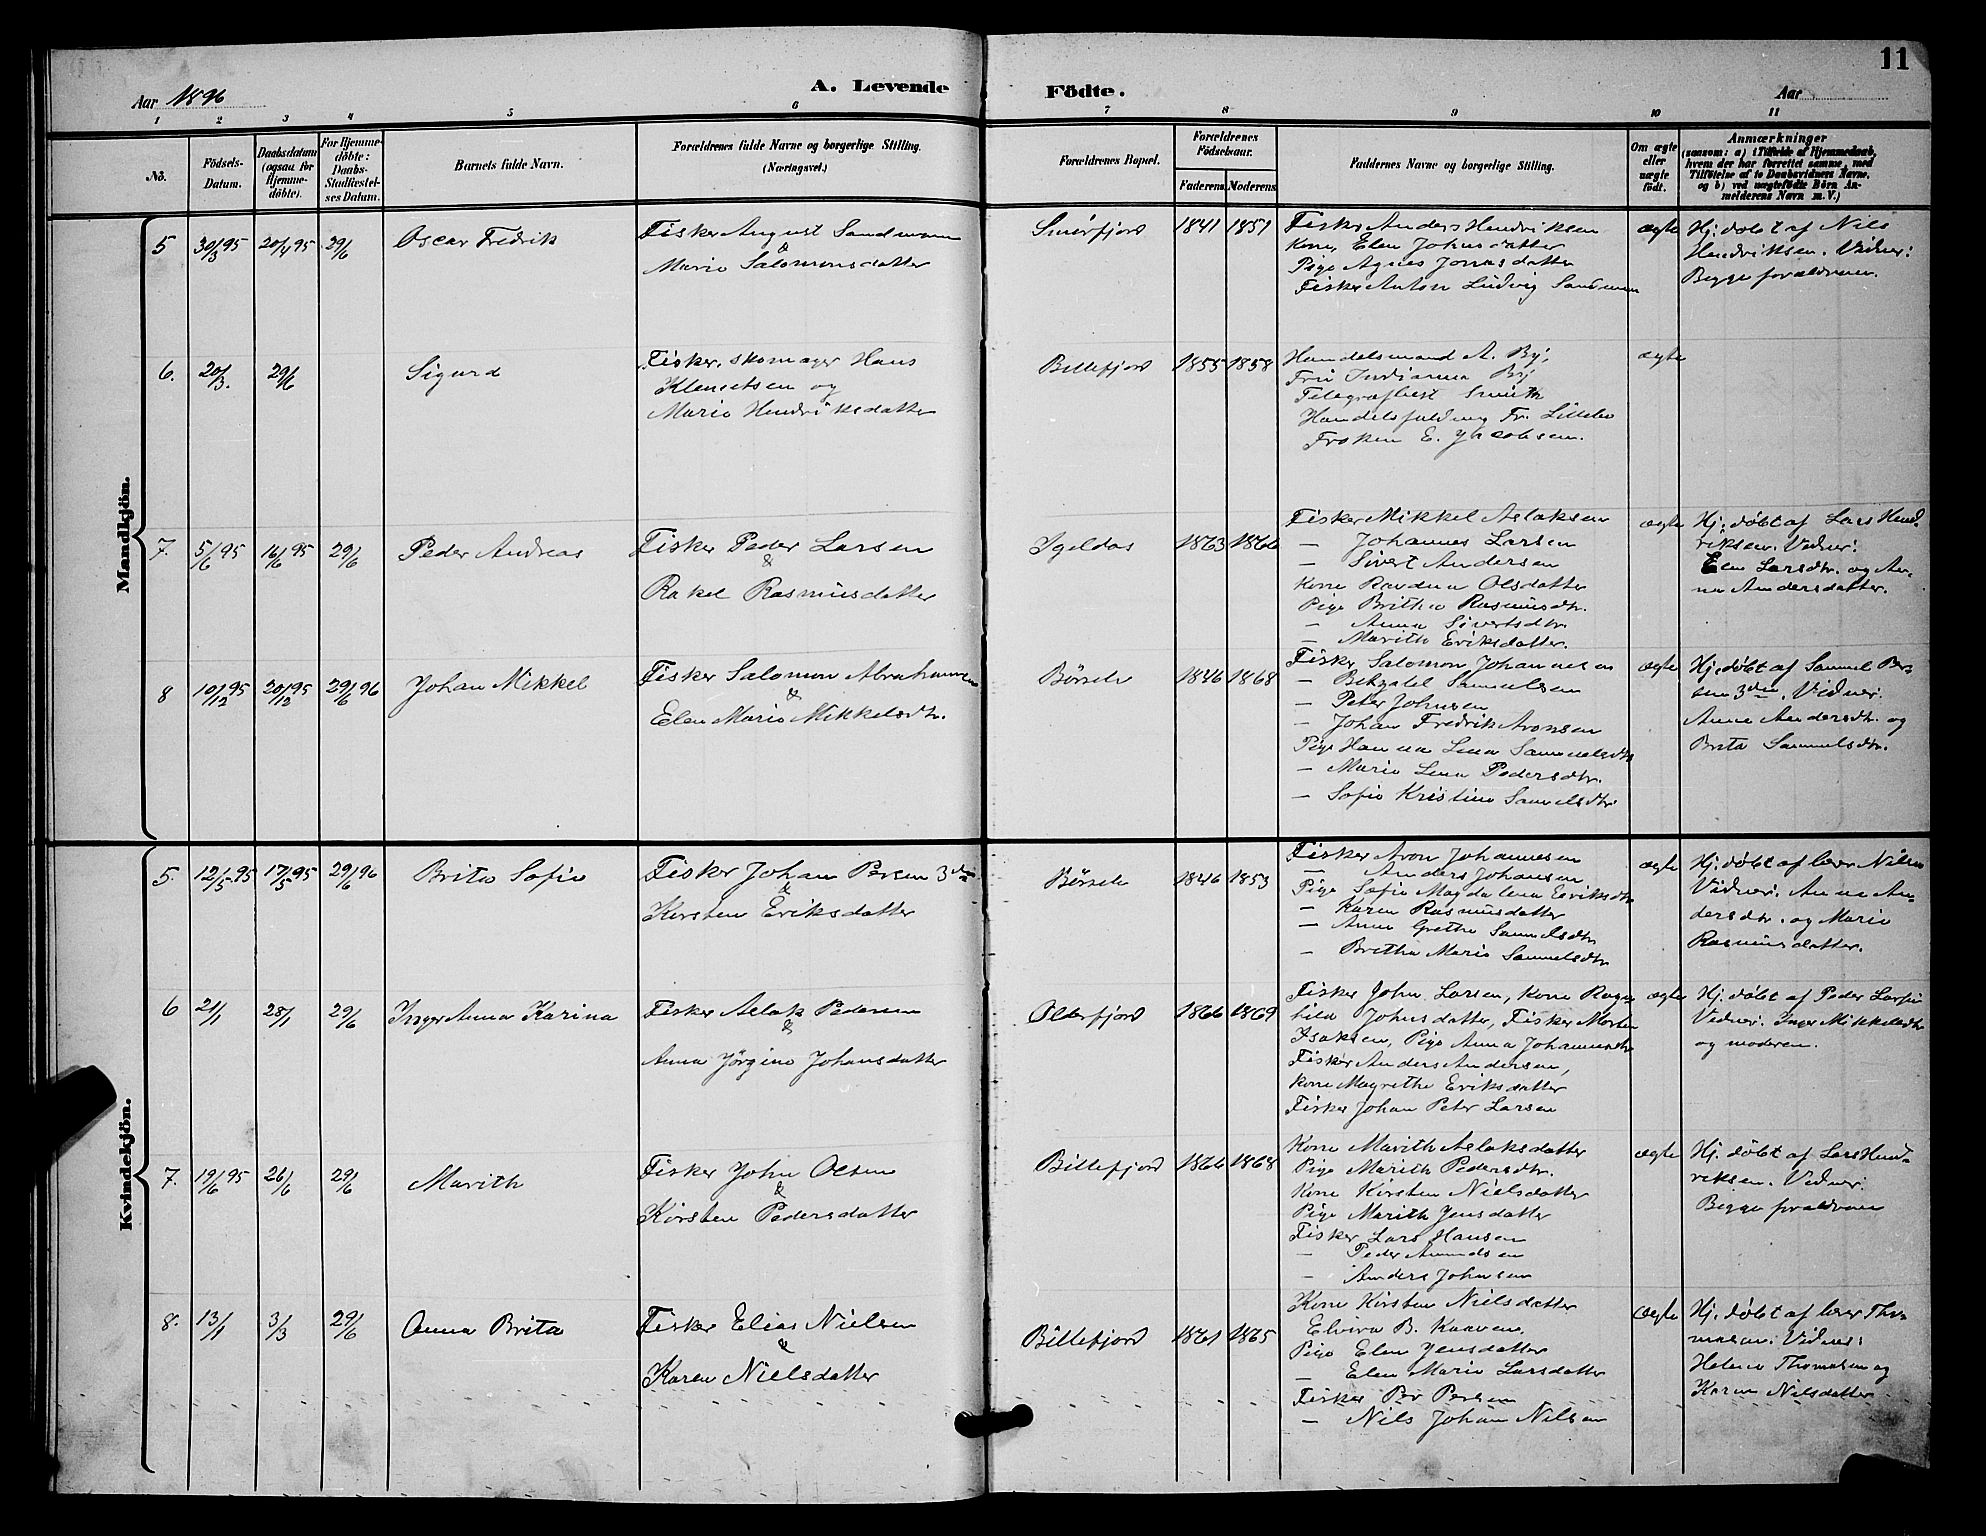 11
A. Levende Födte.
Aar 1896
Aar
1 2 3 4 5 6 7 8 9 10 11
No.
Födsels-Datum.
Daabsdatum (ogsaa for Hjemmedöbte).
For Hjemmedöbte: Daabs-Stadfæstelses Datum.
Barnets fulde Navn.
Forældrenes fulde Navne og borgerlige Stilling. (Næringsvei.)
Forældrenes Bopæl.
Forældrenes Födselsaar.
Faderens Moderens
Faddernes Navne og borgerlige Stilling.
Om ægte eller uægte født.
Anmærkninger
(saasom: a) i Tilfælde af Hjemmedaab,
hvem der har forrettet samme, med
Tilföielse af to Daabsvidners Navne,
og b) ved uægtefödte Börn An-
melderens Navn m. V.)
Mandkjön.
5 30/3 95 20/4 95 29/6 Oscar Fredrik
Fisker August Sandmann
&
Marie Salomonsdatter
Smörfjord 1841 1851
Fisker Anders Hendriksen
Kone, Elen Johnsdatter
Pige Agnes Jonasdatter
Fisker Anton Ludvig Sandman
ægte
Hj. døbt af Nils
Hendriksen. Vidner:
Begge forældrene.
6. 20/3. 29/6 Sigurd
Fisker, skomager Hans
Klemetsen og
Marie Hendriksdatter
Billefjord 1855 1858
Handelsmand A. By,
Fru Indianna By
Telegrafbest Smith
Handelsfuldmg Fr. Lillebo
Frøken E. Jacobsen.
ægte
7. 5/6 95 16/6 95 29/6 Peder Andreas
Fisker Peder Larsen
&
Rakel Rasmusdatter
Igeldas 1863 1866
Fisker Mikkel Aslaksen
— Johannes Larsen
— Sivert Andersen
Kone Ravdna Olsdatter
Pige Britha Rasmusdtr.
— Anna Sivertsdtr.
— Marith Eriksdatter.
ægte
Hj. døbt af Lars Hend-
riksen. Vidner:
Elen Larsdtr. og An-
na Andersdatter.
8 10/12 95 20/12 95 29/6 96 Johan Mikkel
Fisker Salomon Abrahamsen
&
Elen Marie Mikkelsdtr.
Børselv 1846 1868
Fisker Salomon Johannesen
— Samuelsen
— Peter Johnsen
— Johan Fredrik Aronsen
Pige Hanna Lena Samuelsdtr
— Marie Lena Pedersdtr.
— Sofie Kristine Samuelsdtr.
ægte
Hj. døbt af Samuel Per-
sen 3die. Vidner:
Anna Andersdtr. og
Brita Samuelsdtr.
Kvindekjön.
5. 12/5 95 17/5 95 29/6 96 Brita Sofie
Fisker Johan Persen 3die
&
Kirsten Eriksdatter
Børselv 1846 1853
Fisker Aron Johannesen
— Anders Johansen
Pige Sofie Magdalena Eriksdtr
— Karen Rasmusdatter
— Anne Grethe Samuelsdtr
— Britha Marie Samuelsdtr
ægte
Hj. døbt af lærer Nilsen
Vidner: Anna An-
dersdtr. og Marie
Rasmusdatter.
6 21/1 28/1 29/6 Inger Anna Karina
Fisker Aslak Pedersen
&
Anna Jörgine Johansdatter
Olderfjord 1866 1869
Fisker John Larsen, Kone Ragn-
hild Johnsdatter, Fisker Morten
Isaksen, Pige Anna Johannesdtr
Fisker Anders Andersen,
Kone Magrethe Eriksdatter
Fisker Johan Peter Larsen
ægte
Hj. døbt af Peder Larsen
Vidner: Inger Mikkelsdtr
og moderen.
7. 19/6 95 26/6 29/6 Marith
Fisker John Olsen
&
Kirsten Pedersdatter
Billefjord 1866 1868
Kone Marith Aslaksdatter
Pige Marith Pedersdtr.
Kone Kirsten Nielsdatter
Pige Marith Jensdatter
Fisker Lars Hansen
— Peder Amundsen
— Anders Johnsen
ægte
Hj. døbt af Lars Hend-
riksen. Vidner:
Begge forældrene
8. 13/1 3/3 29/6 Anna Brita
Fisker Elias Nielsen
&
Karen Nielsdatter
Billefjord 1861 1865
Kone Kirsten Nielsdatter
Elvira B. Kaaven,
Pige Elen Jensdatter
— Elen Marie Larsdatter
Fisker Per Persen
— Nils Johan Nilsen
ægte
Hj. døbt af lærer Tho-
massen. Vidner:
Helene Thomassen og
Karen Nilsdatter